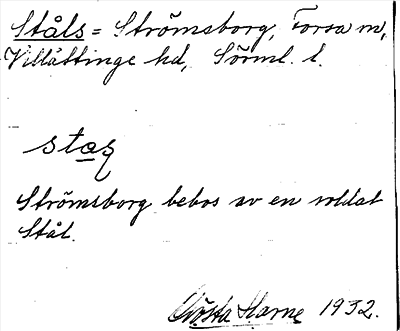 Ståls = Strömsborg, Forsa m,
Villåttinge hd, Sörml. l.
staʒ
Strömsborg bebos av en soldat
Stål.
Gösta Harne 1932.